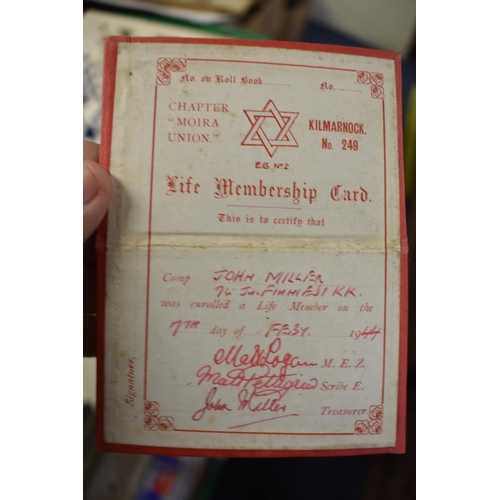 No. on Roll Book......... No..........
CHAPTER
"MOIRA
UNION."
KILMARNOCK.
No. 249
E.G. No 2
Life Membership Card.
This is to certify that
Comp JOHN MILLER
was enrolled a Life Member on the
7TH day of FEBY. 1944
M. E. Z.
Scribe E.
John Miller Treasurer.
Signature,